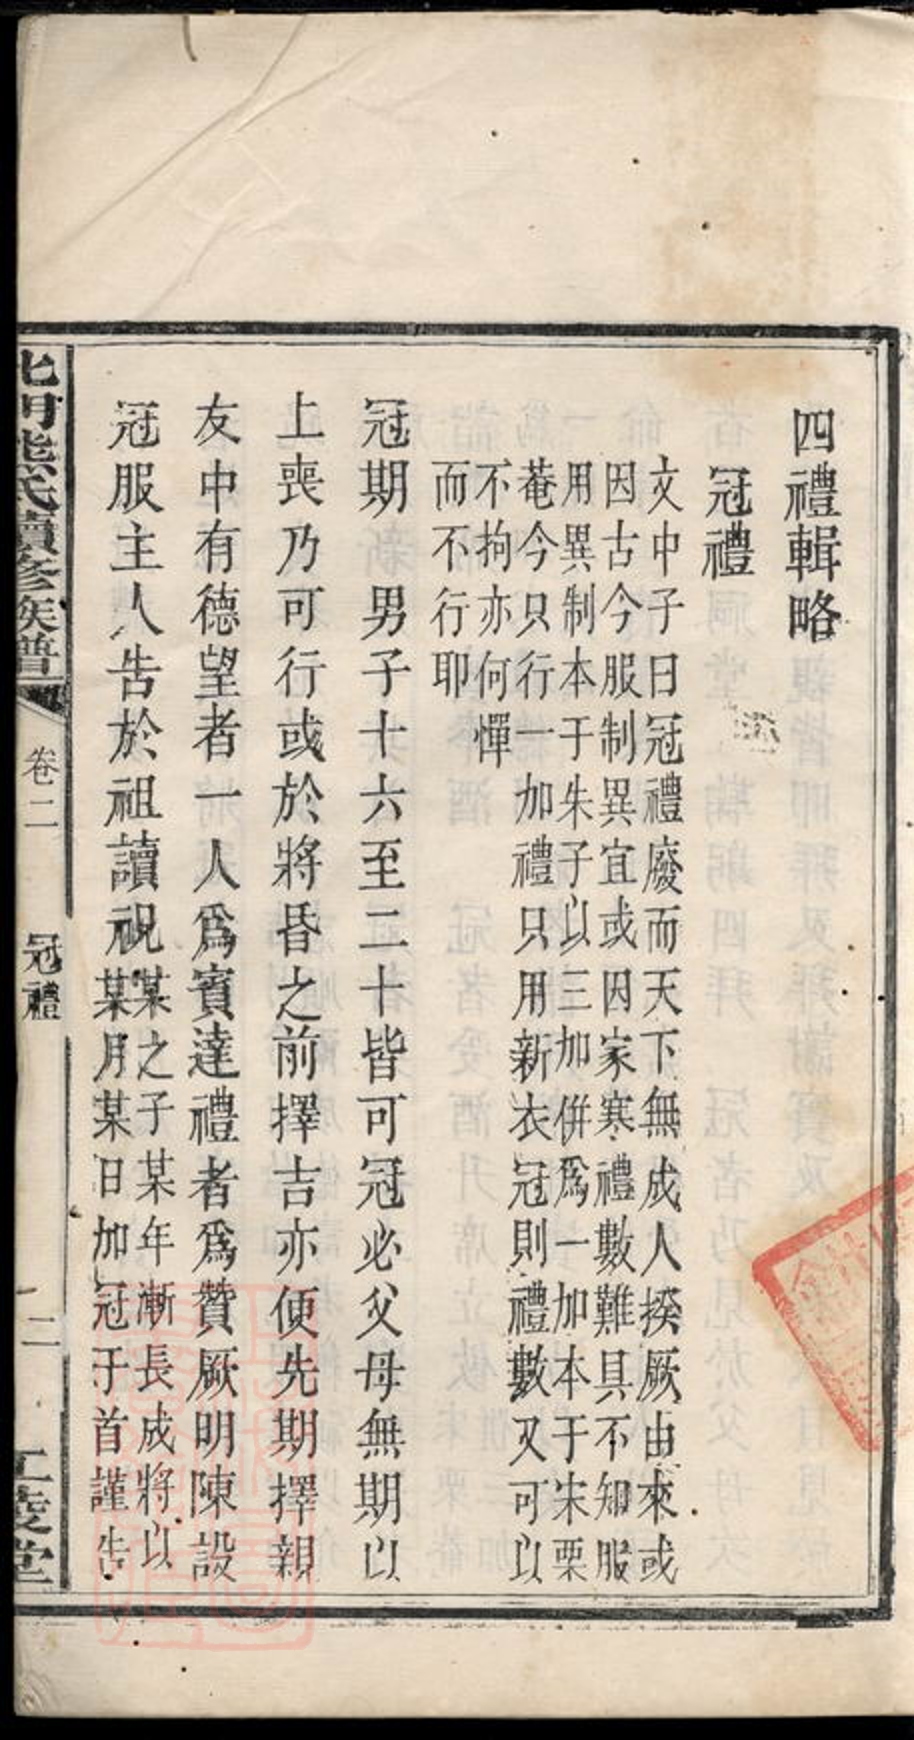 四禮輯略
冠禮
文中子曰冠禮廢而天下無成人揆厥由來或
因古今服制異宜或因家寒禮數難具不知服
用異制本于朱子以三加併爲一加本于宋栗
菴今只行一加禮只用新衣冠則禮數又可以
不拘亦何憚
而不行耶
冠期　男子十六至二十皆可冠必父母無期以
上喪乃可行或於將昏之前擇吉亦便先期擇親
友中有德望者一人爲賓達禮者爲贊厥明陳設
冠服主人告於祖讀祝某之子某年漸長成將以
某月某日加冠于首謹告
北門熊氏續修族譜
卷二
冠禮
二
江陵堂